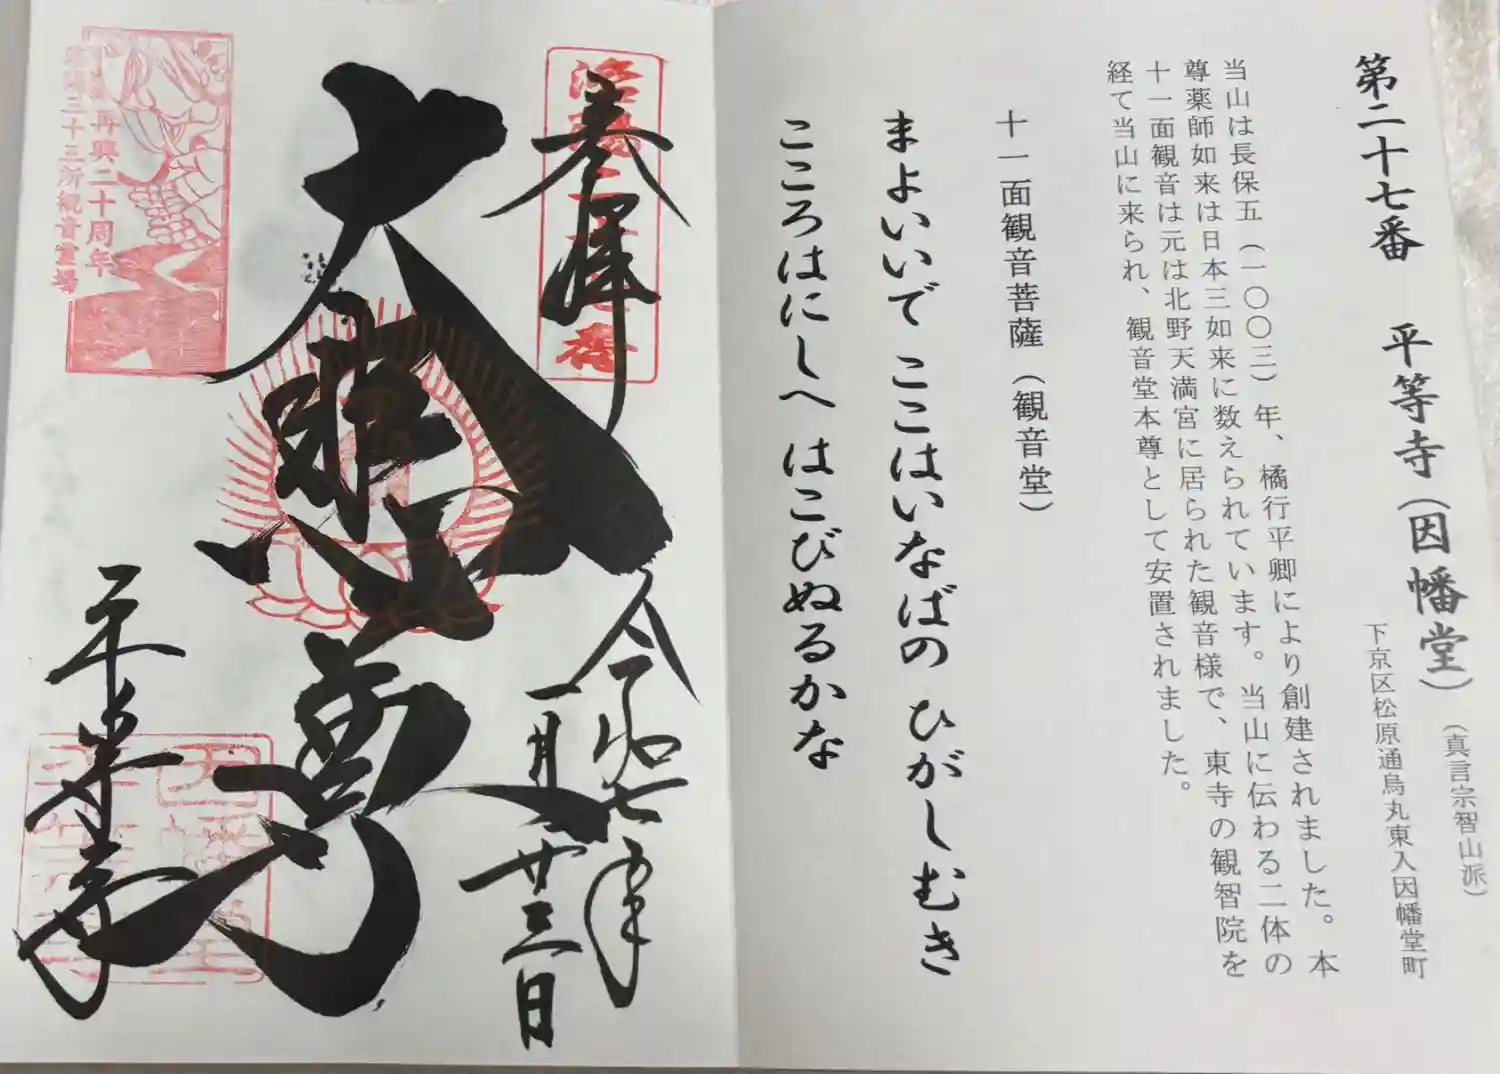 第二十七番　平等寺（因幡堂）
（真言宗智山派）
下京区松原通烏丸東入因幡堂町
当山は長保五（一〇〇三）年、橘行平卿により創建されました。本
尊薬師如来は日本三如来に数えられています。当山に伝わる二体の
十一面観音は元は北野天満宮に居られた観音様で、東寺の観智院を
経て当山に来られ、観音堂本尊として安置されました。
十一面観音菩薩（観音堂）
まよいいで ここはいなばの ひがしむき
こころはにしへ はこびぬるかな
奉拝
令和七年
一月廿三日
大悲尊
平等寺
再興二十周年
洛陽三十三所観音霊場